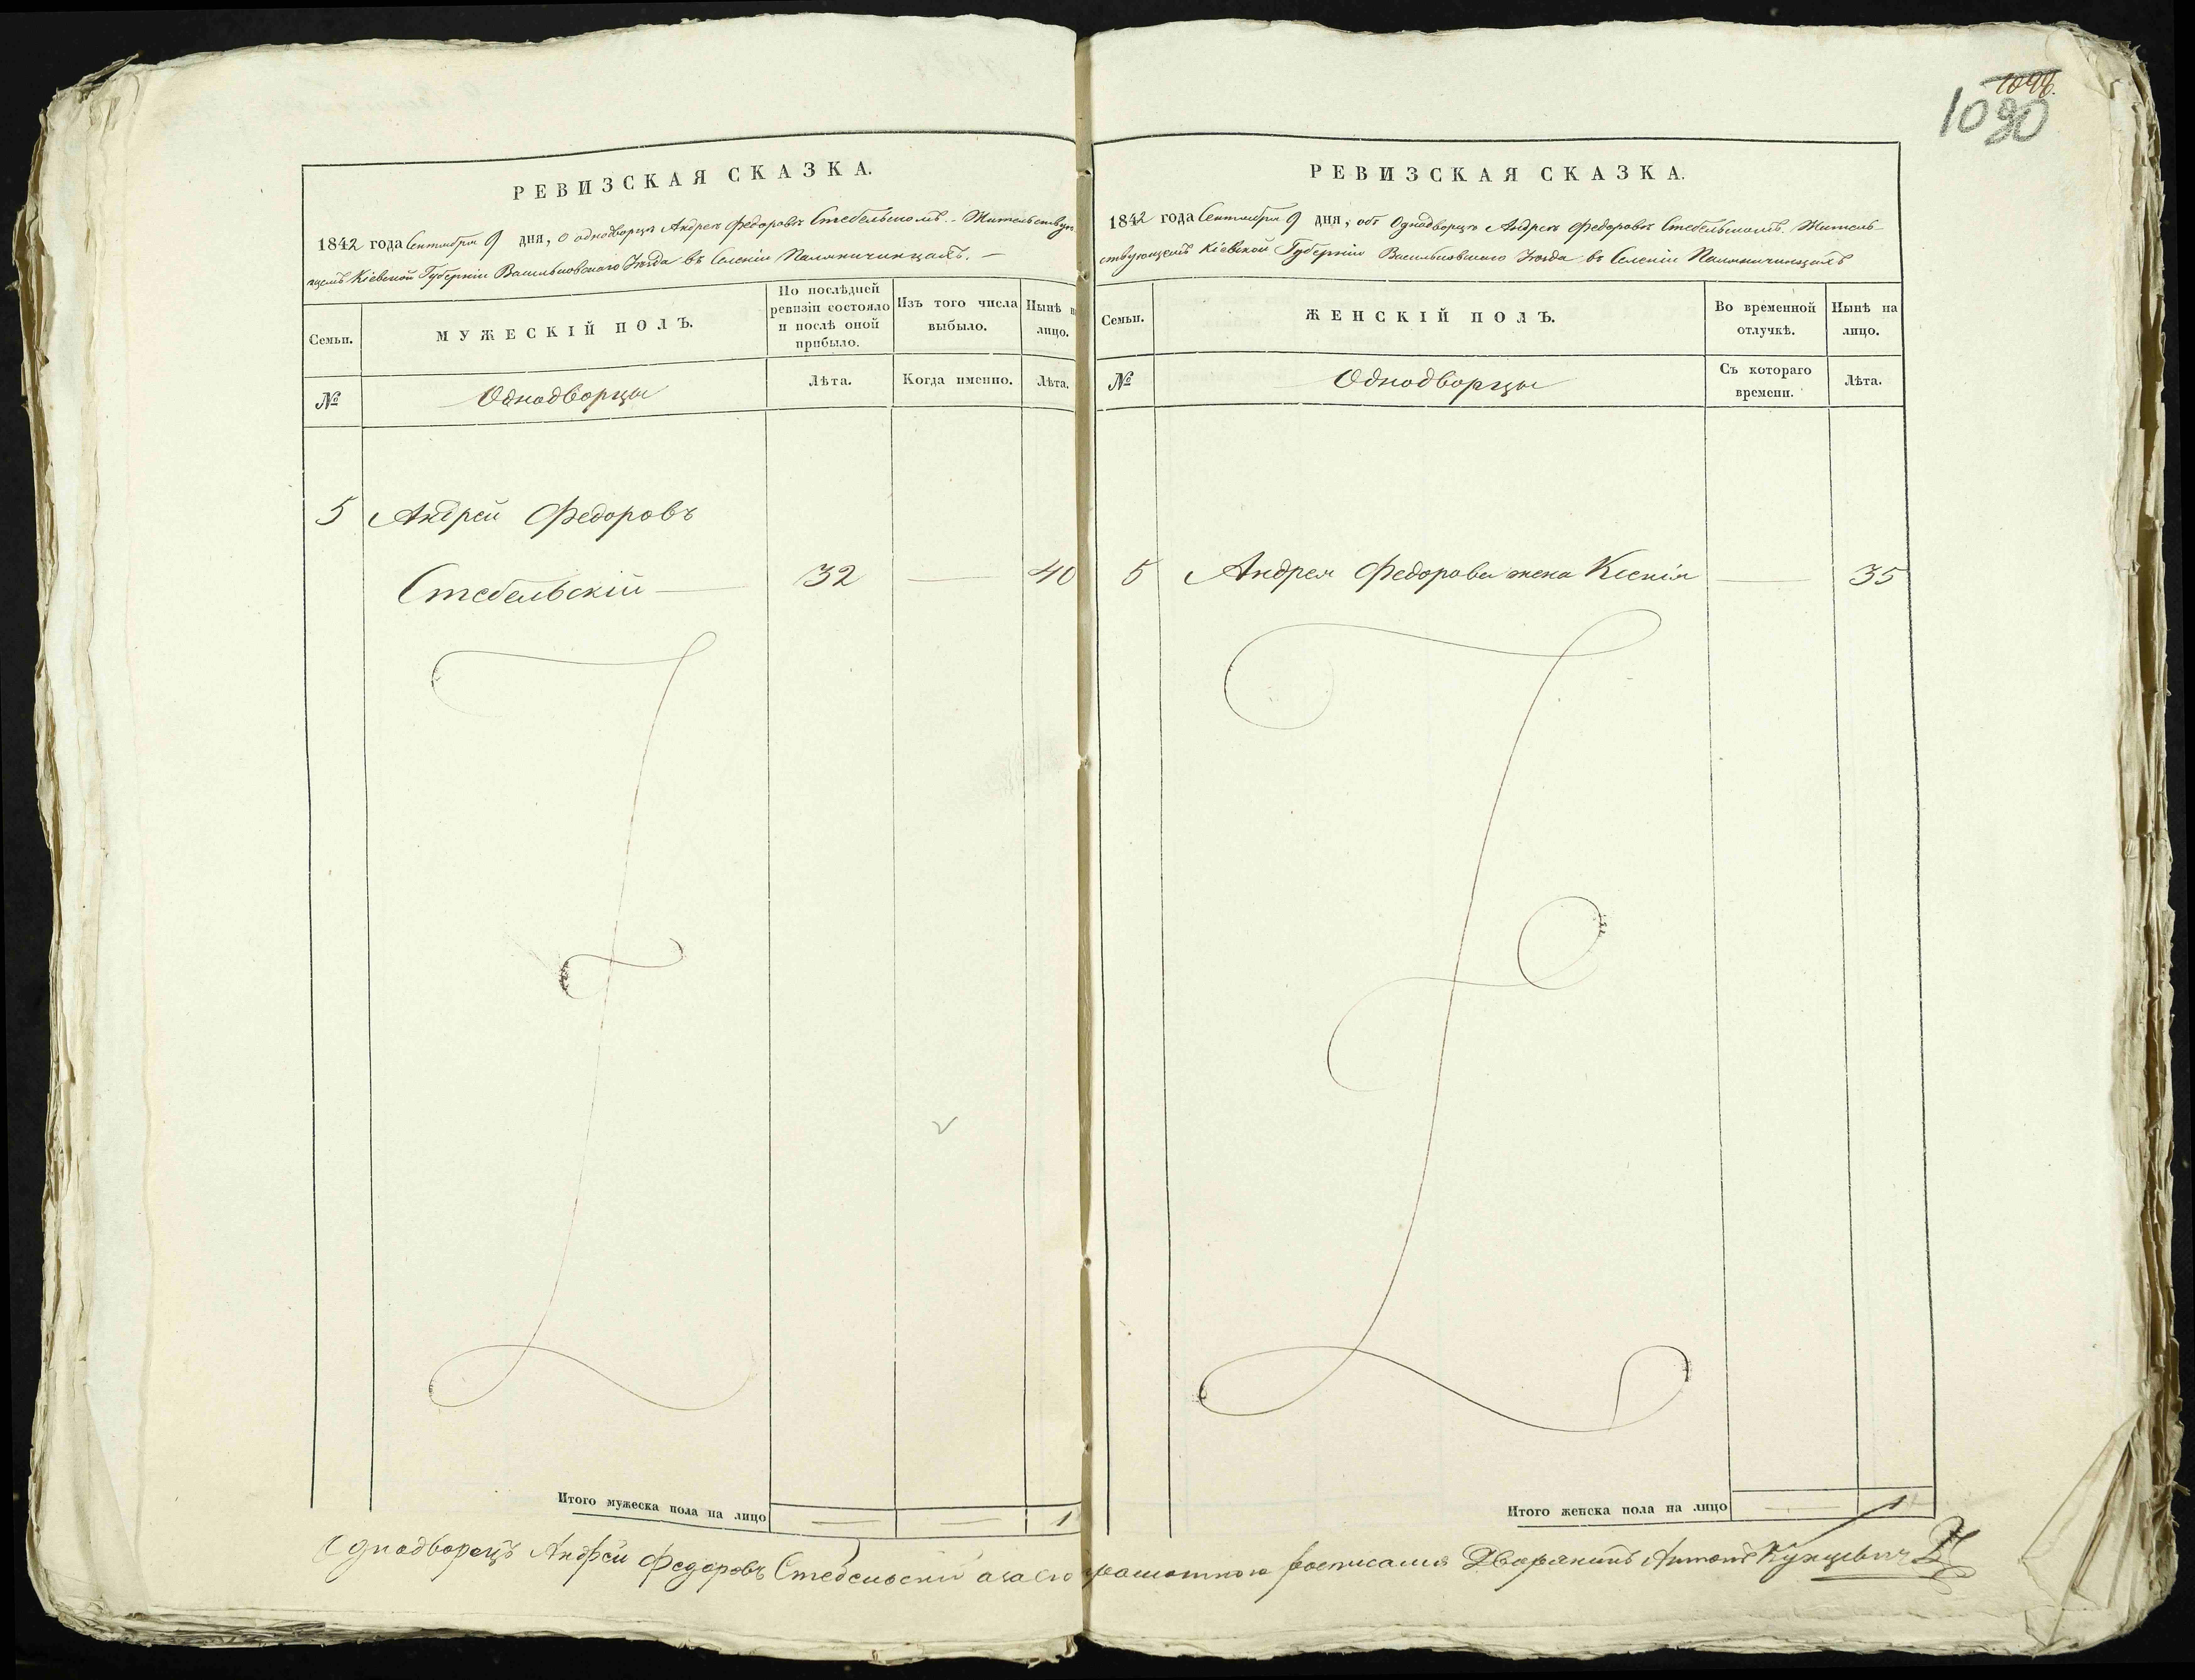 1048.
1090
РЕВИЗСКАЯ СКАЗКА.
1842 года Сентября 9 дня, о однодворце Андрее Федоровѣ Стебельскомъ. - Жительствую-
щемъ Кіевской Губерніи Васильковскаго Уѣзда въ Селеніи Паляничинцахъ. —
Семьи.
МУЖЕСКІЙ ПОЛЪ.
По послѣдней
ревизіи состояло
и послѣ оной
прибыло.
Изъ того числа
выбыло.
Нынѣ н
лицо.
№
Однодворцы
Лѣта.
Когда именно.
Лѣта.
5 Андрей Федоровъ
Стебельскій — 32 — 40
Итого мужеска пола на лицо — — 1
РЕВИЗСКАЯ СКАЗКА.
1842 года Сентября 9 дня, объ Однодворце Андрее Федоровѣ Стебельскомъ. Житель-
ствующемъ Кіевской Губерніи Васильковскаго Уѣзда въ Селеніи Паляничинцахъ
Семьи.
ЖЕНСКІЙ ПОЛЪ.
Во временной
отлучкѣ.
Нынѣ на
лицо.
№
Однодворцы
Съ котораго
времени.
Лѣта.
5 Андрея Федорова жена Ксенія — 35
Итого женска пола на лицо — 1
Однодворецъ Андрей Федоровъ Стебельский а за его росписался Дворянинъ Антонъ Кунцевич